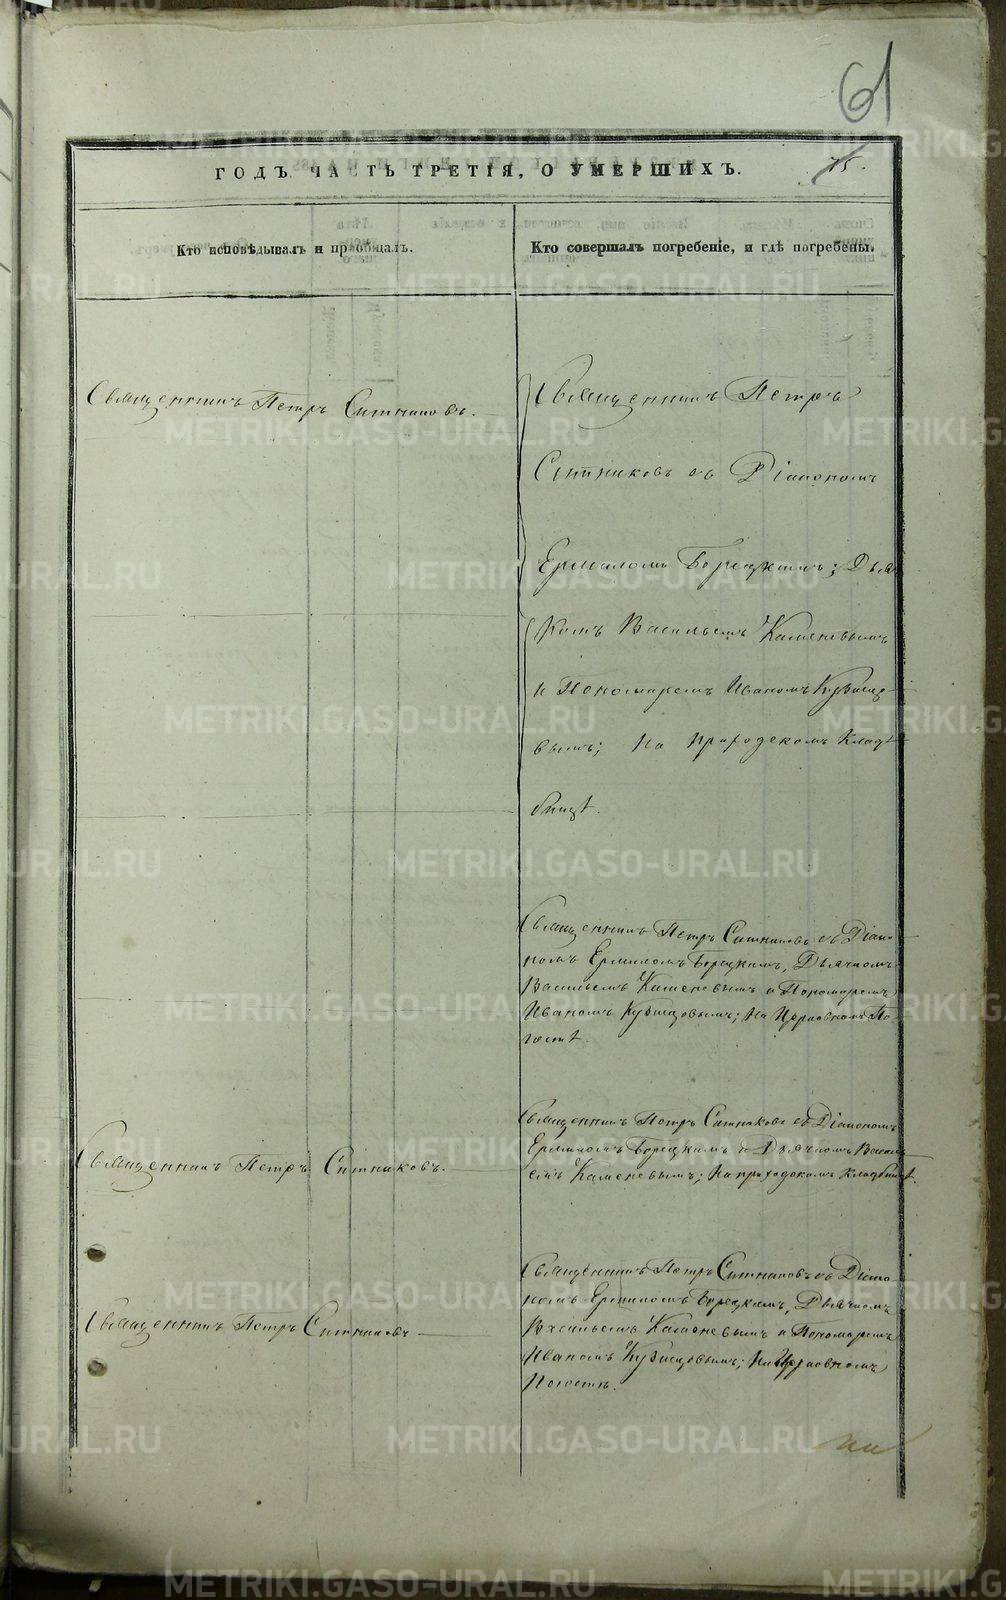 61
75.
ГОДЪ ЧАСТЬ ТРЕТІЯ, О УМЕРШИХЪ.
Кто исповѣдывалъ и пріобщалъ.
Кто совершалъ погребеніе, и гдѣ погребены.
Священникъ Петръ Ситниковъ.
Священникъ Петръ
Ситниковъ съ Діакономъ
Ермиломъ Борецкимъ; Дья
комъ Василіемъ Каменевымъ
и Пономаремъ Иваномъ Кузнецо
вымъ; На приходскомъ Клад
бищѣ.
Священникъ Петръ Ситниковъ съ Діако
номъ Ермиломъ Борецкимъ, Дьячкомъ
Василіемъ Каменевымъ и Пономаремъ
Иваномъ Кузнецовымъ; На Церковномъ По
гостѣ.
Священникъ Петръ Ситниковъ.
Священникъ Петръ Ситниковъ съ Діакономъ
Ермиломъ Борецкимъ и Дьячкомъ Васи
емъ Каменевымъ; На приходскомъ Кладбищѣ.
Священникъ Петръ Ситниковъ
Священникъ Петръ Ситниковъ съ Діако
номъ Ермиломъ Борецкимъ, Дьячкомъ
Василіемъ Каменевымъ и Пономаремъ
Иваномъ Кузнецовымъ; На Церковномъ
Погостѣ.
METRIKI.GASO-URAL.RU